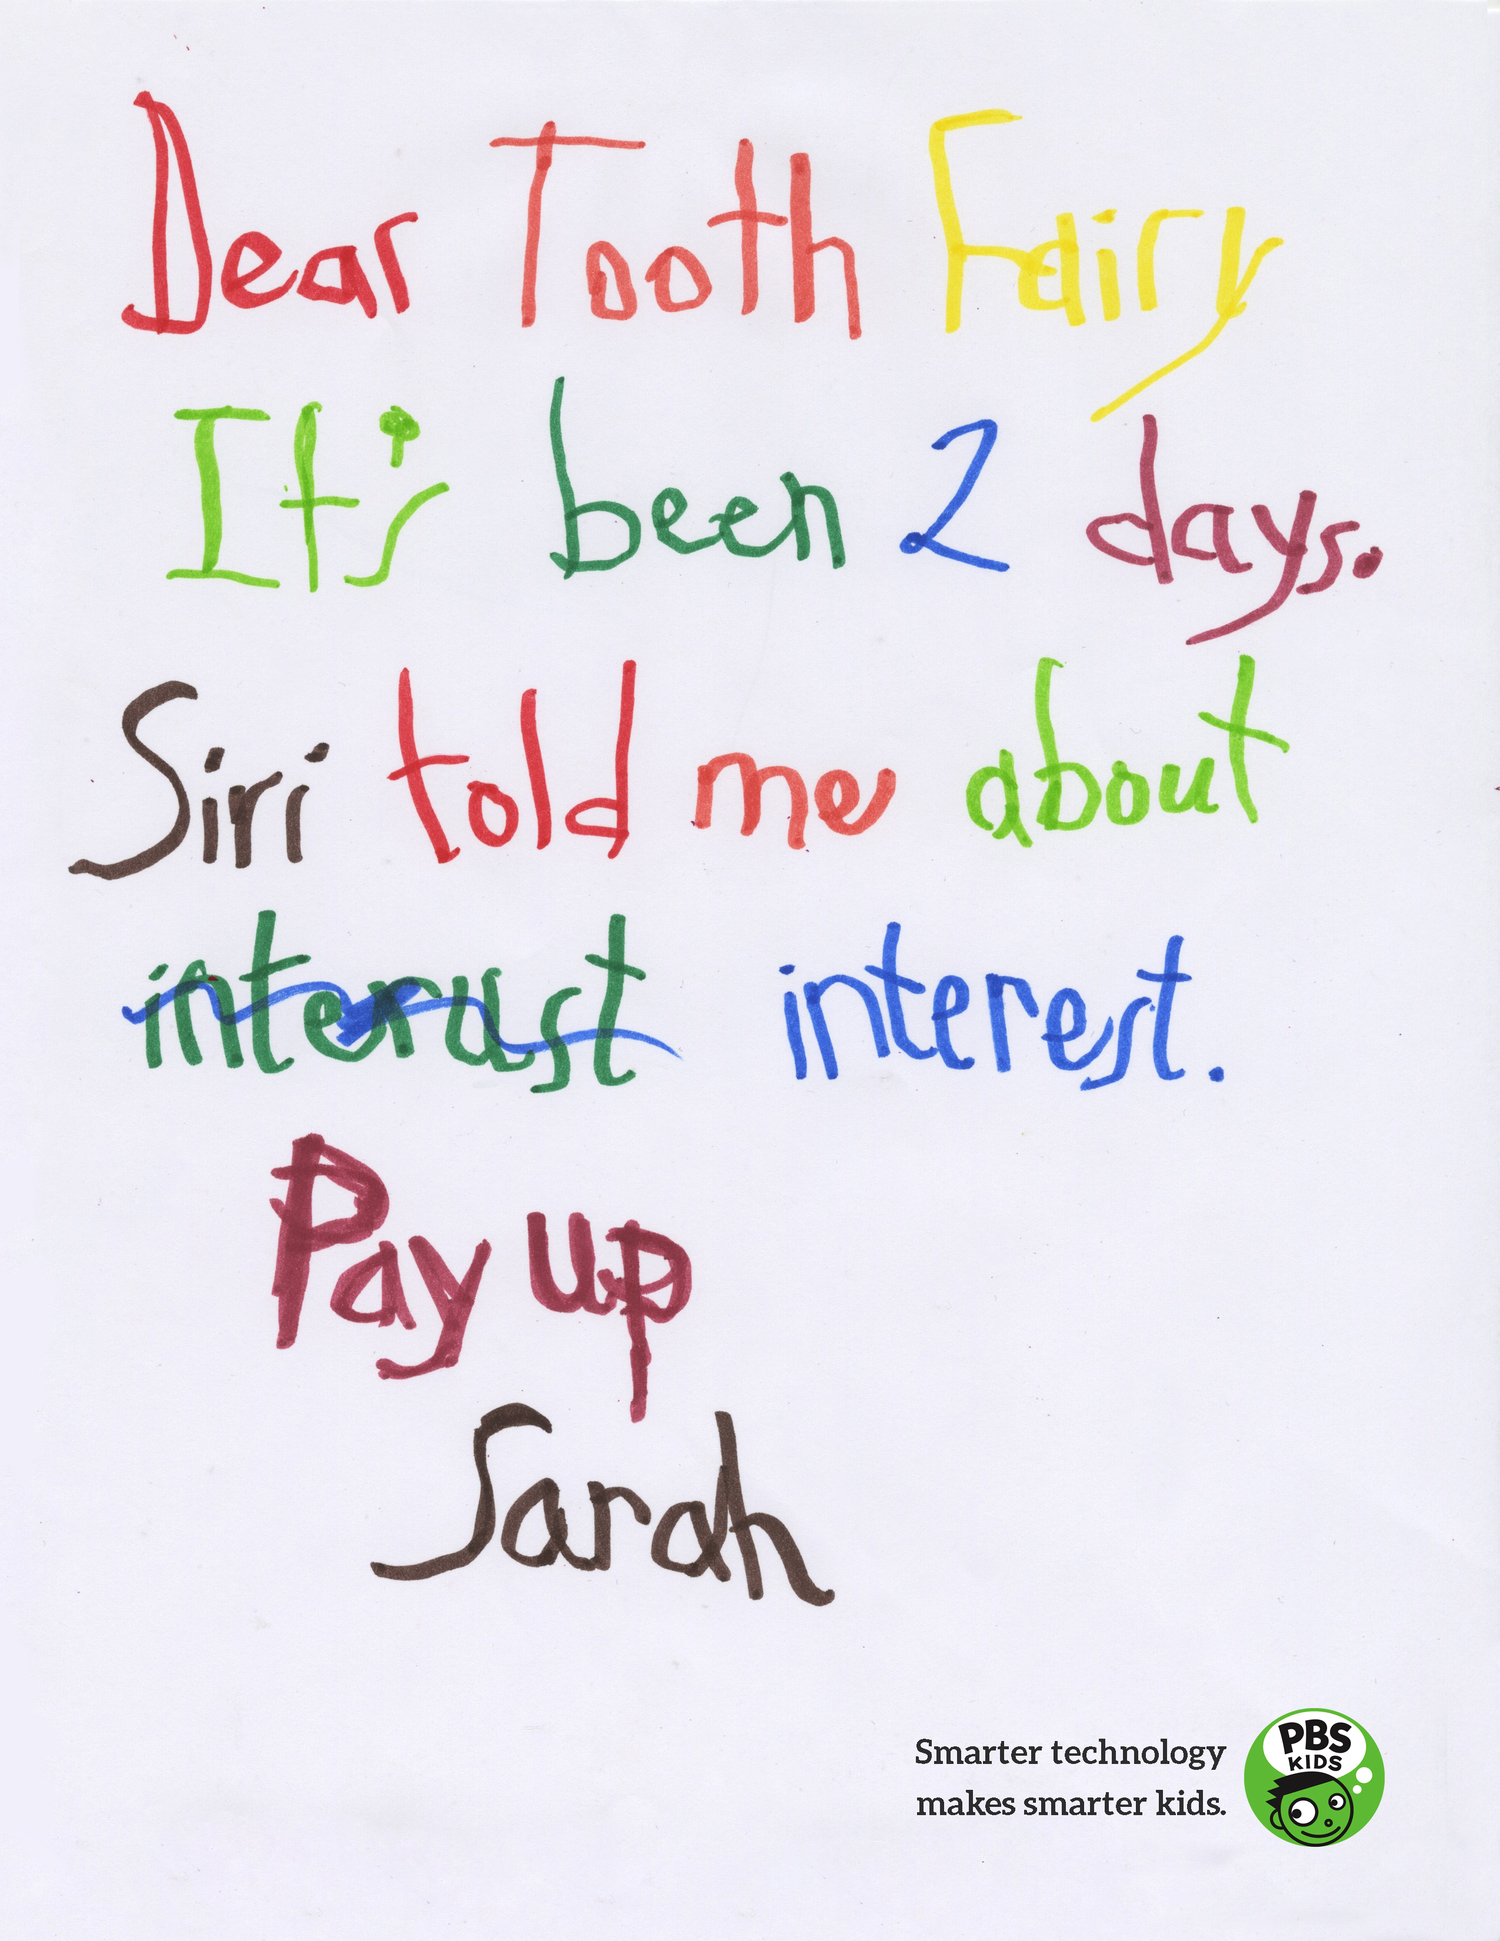 Dear Tooth Fairy
It's been 2 days.
Siri told me about
interust interest.
Pay up
Sarah
Smarter technology
makes smarter kids.
PBS
KIDS